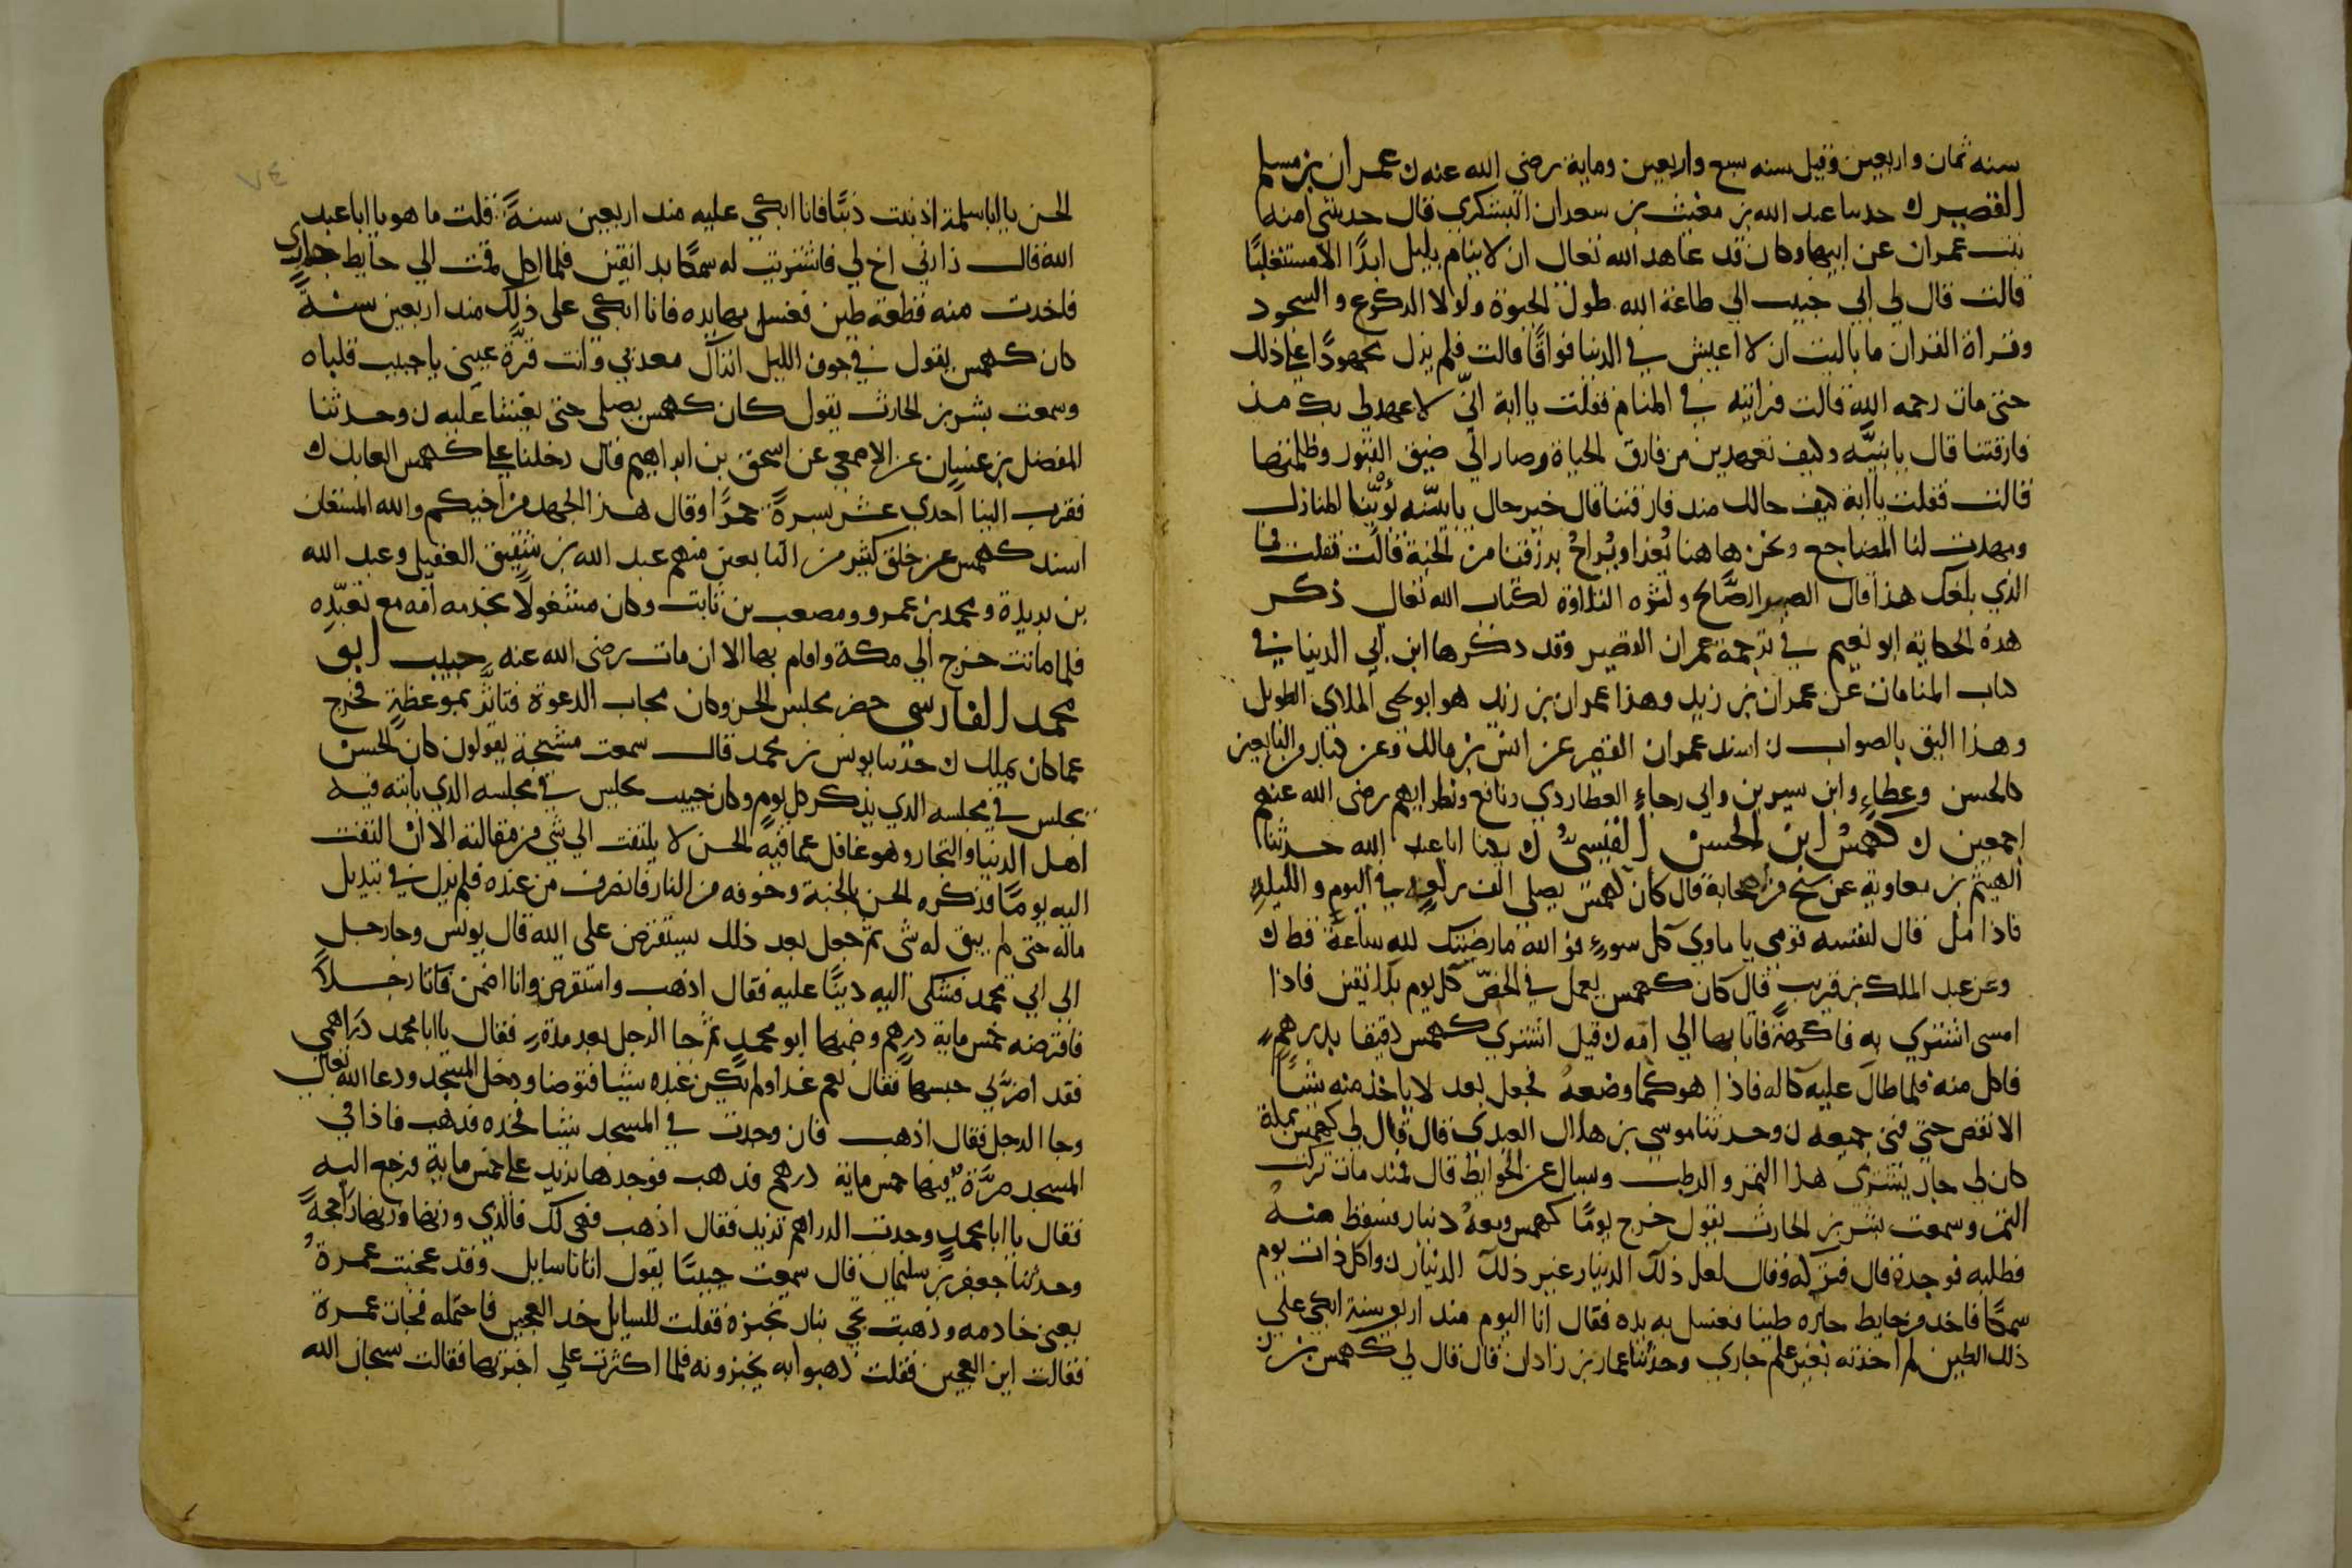 سنه ثمان واربعين وقيل سنه سبع واربعين وماية رضي الله عنه ن عمران بن مسلم
القصير ن حدثنا عبد الله بن مغيث بن سعدان اليشكري قال حدثتني امنه
بنت عمران عن ابيها وكان قد عاهد الله تعالى ان لا ينام بليل ابدًا الا مستغلبًا
قالت قال لي ابي حبيب الي طاعة الله طول الحيوة ولولا الركوع والسجود
وقراة القران ما باليت ان لا اعيش في الدنيا فواقًا قالت فلم يزل مجهودًا علي ذلك
حتى مات رحمه الله قالت فرايته في المنام فقلت يا ابة انّي لا عهد لي بك مذ
فارقتنا قال يا بنيّه وكيف تعهدين من فارق الحياة وصار الي ضيق القبور وظلمتها
قالت فقلت يا ابة كيف حالك منذ فارقتنا قال خير حال يا بنيّه بُوّينا المنازل
ومهدت لنا المضاجع ونحن هاهنا يُغدا ويُراحُ برزقنا من الجنة قالت فقلت فما
الذي بلغك هذا قال الضمير الصَّالح وكثرة التلاوة لكتاب الله تعالى ذكر
هذه الحكاية ابو نعيم في ترجمة عمران القصير وقد ذكرها ابن ابي الدنيا في
كتاب المنامات عن عمران بن زيد وهذا عمران بن زيد هو ابو يحيى الملاي الطويل
وهذا اليق بالصواب ن اسند عمران القصير عن انس بن مالك وعن كبار التابعين
كالحسن وعطاء وابن سيرين وابي رجاء العطاردي ونافع ونظرايهم رضي الله عنهم
اجمعين ن كهمسُ ابن الحسن القيسيُّ ن يكنا ابا عبد الله حدثنا
الهيثم بن معاوية عن شيخ من اصحابه قال كان كهمس يصلي الف ركعةٍ في اليوم والليلةِ
فاذا مل قال لنفسه قومي يا ماوي كل سوءٍ فو الله ما رضيتك لله ساعةً قط ن
وعن عبد الملك بن قريب قال كان كهمس يعمل في الجصّ كل يوم بدانقين فاذا
امسى اشترى به فاكهةً فاتا بها الي امه ن قيل اشترى كهمس دقيقا بدرهم
فاكل منه فلما طال عليه كاله فاذا هو كما وضعه فجعل بعد لا ياخذ منه شيئًا
الا نقص حتي فني جميعه ن وحدثنا موسى بن هلال العبدي قال قال لي كهمس بمكة
كان لي جار يشتري هذا التمر والرطب وسال عن الحوايط قال فمنذ مات تركت
التمر وسمعت بشر بن الحارث يقول خرج يومًا كهمس ومعهُ دينار فسقط منهُ
فطلبه فوجده قال فتركه وقال لعل ذلك الدينار غير ذلك الدينار ن واكل ذات يوم
سمكًا فاخذ من حايط جاره طينا فغسل به يده فقال انا اليوم منذ اربعين سنة ابكي على
ذلك الطين لم اخذته بغير علم جاري وحدثنا عمار بن زاذان قال قال لي كهمس بن
الحسن يا ابا سلمة اذنبت ذنبًا فانا ابكي عليه منذ اربعين سنةً قلت ما هو يا ابا عبد
الله قال زارني اخ لي فاشتريت له سمكًا بدانقين فلما اكل قمت الي حايط جاري
فاخذت منه قطعة طين فغسل بها يده فانا ابكي على ذلك منذ اربعين سنةً
كان كهمس يقول في جوف الليل اتراك معذبي وانت قرّة عيني يا حبيب قلباه
وسمعت بشر بن الحارث يقول كان كهمس يصلي حتى يغشا عليه ن وحدثنا
المفضل بن غسان عن الاصمعي عن اسحق بن ابراهيم قال دخلنا على كهمس العابد ن
فقرب الينا احدي عشر بسرةً حمرًا وقال هذا الجهد من اخيكم والله المستعان
اسند كهمس عن خلق كثير من التابعين منهم عبد الله بن شقيق العقيلي وعبد الله
بن بريدة ومحمد بن عمرو ومصعب بن ثابت وكان مشغولًا بخدمه امه مع تعبّده
فلما ماتت خرج الي مكة واقام بها الا ان مات رضي الله عنه حبيب ابو
محمد الفارسي حضر مجلس الحسن وكان مجاب الدعوة فتاثَّر بموعظته فخرج
عما كان يملك ن حدثنا يونس بن محمد قال سمعت مشيخة يقولون كان الحسن
يجلس في مجلسه الذي يذكر كل يوم وكان حبيب يجلس في مجلسه الذي ياتيه فيه
اهل الدنيا والتجار وهو غافل عما فيه الحسن لا يلتفت الي شي من مقالته الا ان التفت
اليه يومًا فذكره الحسن بالجنة وخوفه من النار فانصرف من عنده فلم يزل في تبديل
ماله حتى لم يبق له شي ثم جعل بعد ذلك يستقرض على الله قال يونس وجا رجل
الي ابي محمد فشكى اليه دينًا عليه فقال اذهب واستقرض وانا اضمن فاتا رجلًا
فاقترضه خمس ماية درهم وضمنها ابو محمدٍ ثم جا الرجل بعد مدةٍ فقال يا ابا محمد دراهمي
فقد اضرَّ بي حبسها فقال نعم غدا ولم يكن عنده شيئا فتوضا ودخل المسجد ودعا الله تعالى
وجا الرجل فقال اذهب فان وجدت في المسجد شيئا فخذه فذهب فاذا في
المسجد صرَّة فيها خمس ماية درهم فذهب فوجدها تزيد على خمس ماية فرجع اليه
فقال يا ابا محمدٍ وجدت الدراهم تزيد فقال اذهب فهي لك فالذي وزنها وزنها راجحةً
وحدثنا جعفر بن سليمان قال سمعت حبيبًا يقول اتانا سايل وقد عجنت عمرةُ
يعني خادمه وذهبت تجي بنار تخبزه فقلت للسايل خذ العجين فاحتمله فجات عمرة
فقالت اين العجين فقلت ذهبوا به يخبزونه فلما اكثرت علي اخبرتها فقالت سبحان الله